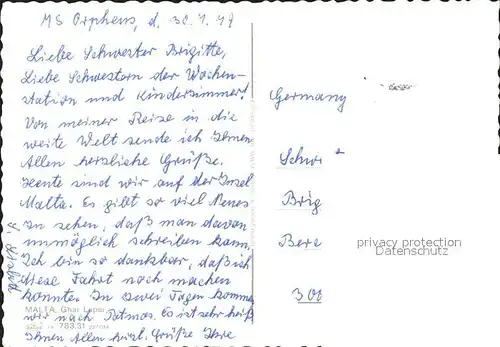 MS Orpheus, d. 30.7.
Liebe Schwester Brigitte,
Liebe Schwestern der Wochen-
station und Kinderzimmer!
Von meiner Reise in die
weite Welt sende ich Ihnen
Allen herzliche Grüße.
Heute sind wir auf der Insel
Malta. Es gibt so viel Neues
zu sehen, daß man davon
unmöglich schreiben kann.
Ich bin so dankbar, daß ich
diese Fahrt noch machen
konnte. In zwei Tagen kommen
wir nach Patmos. Es ist sehr heiß
Ihnen Allen herzl. Grüße Ihre
MALTA, Ghar Lapsi
783.31
Germany
Schw
Brig
Ber
300
privacy protection
Datenschutz